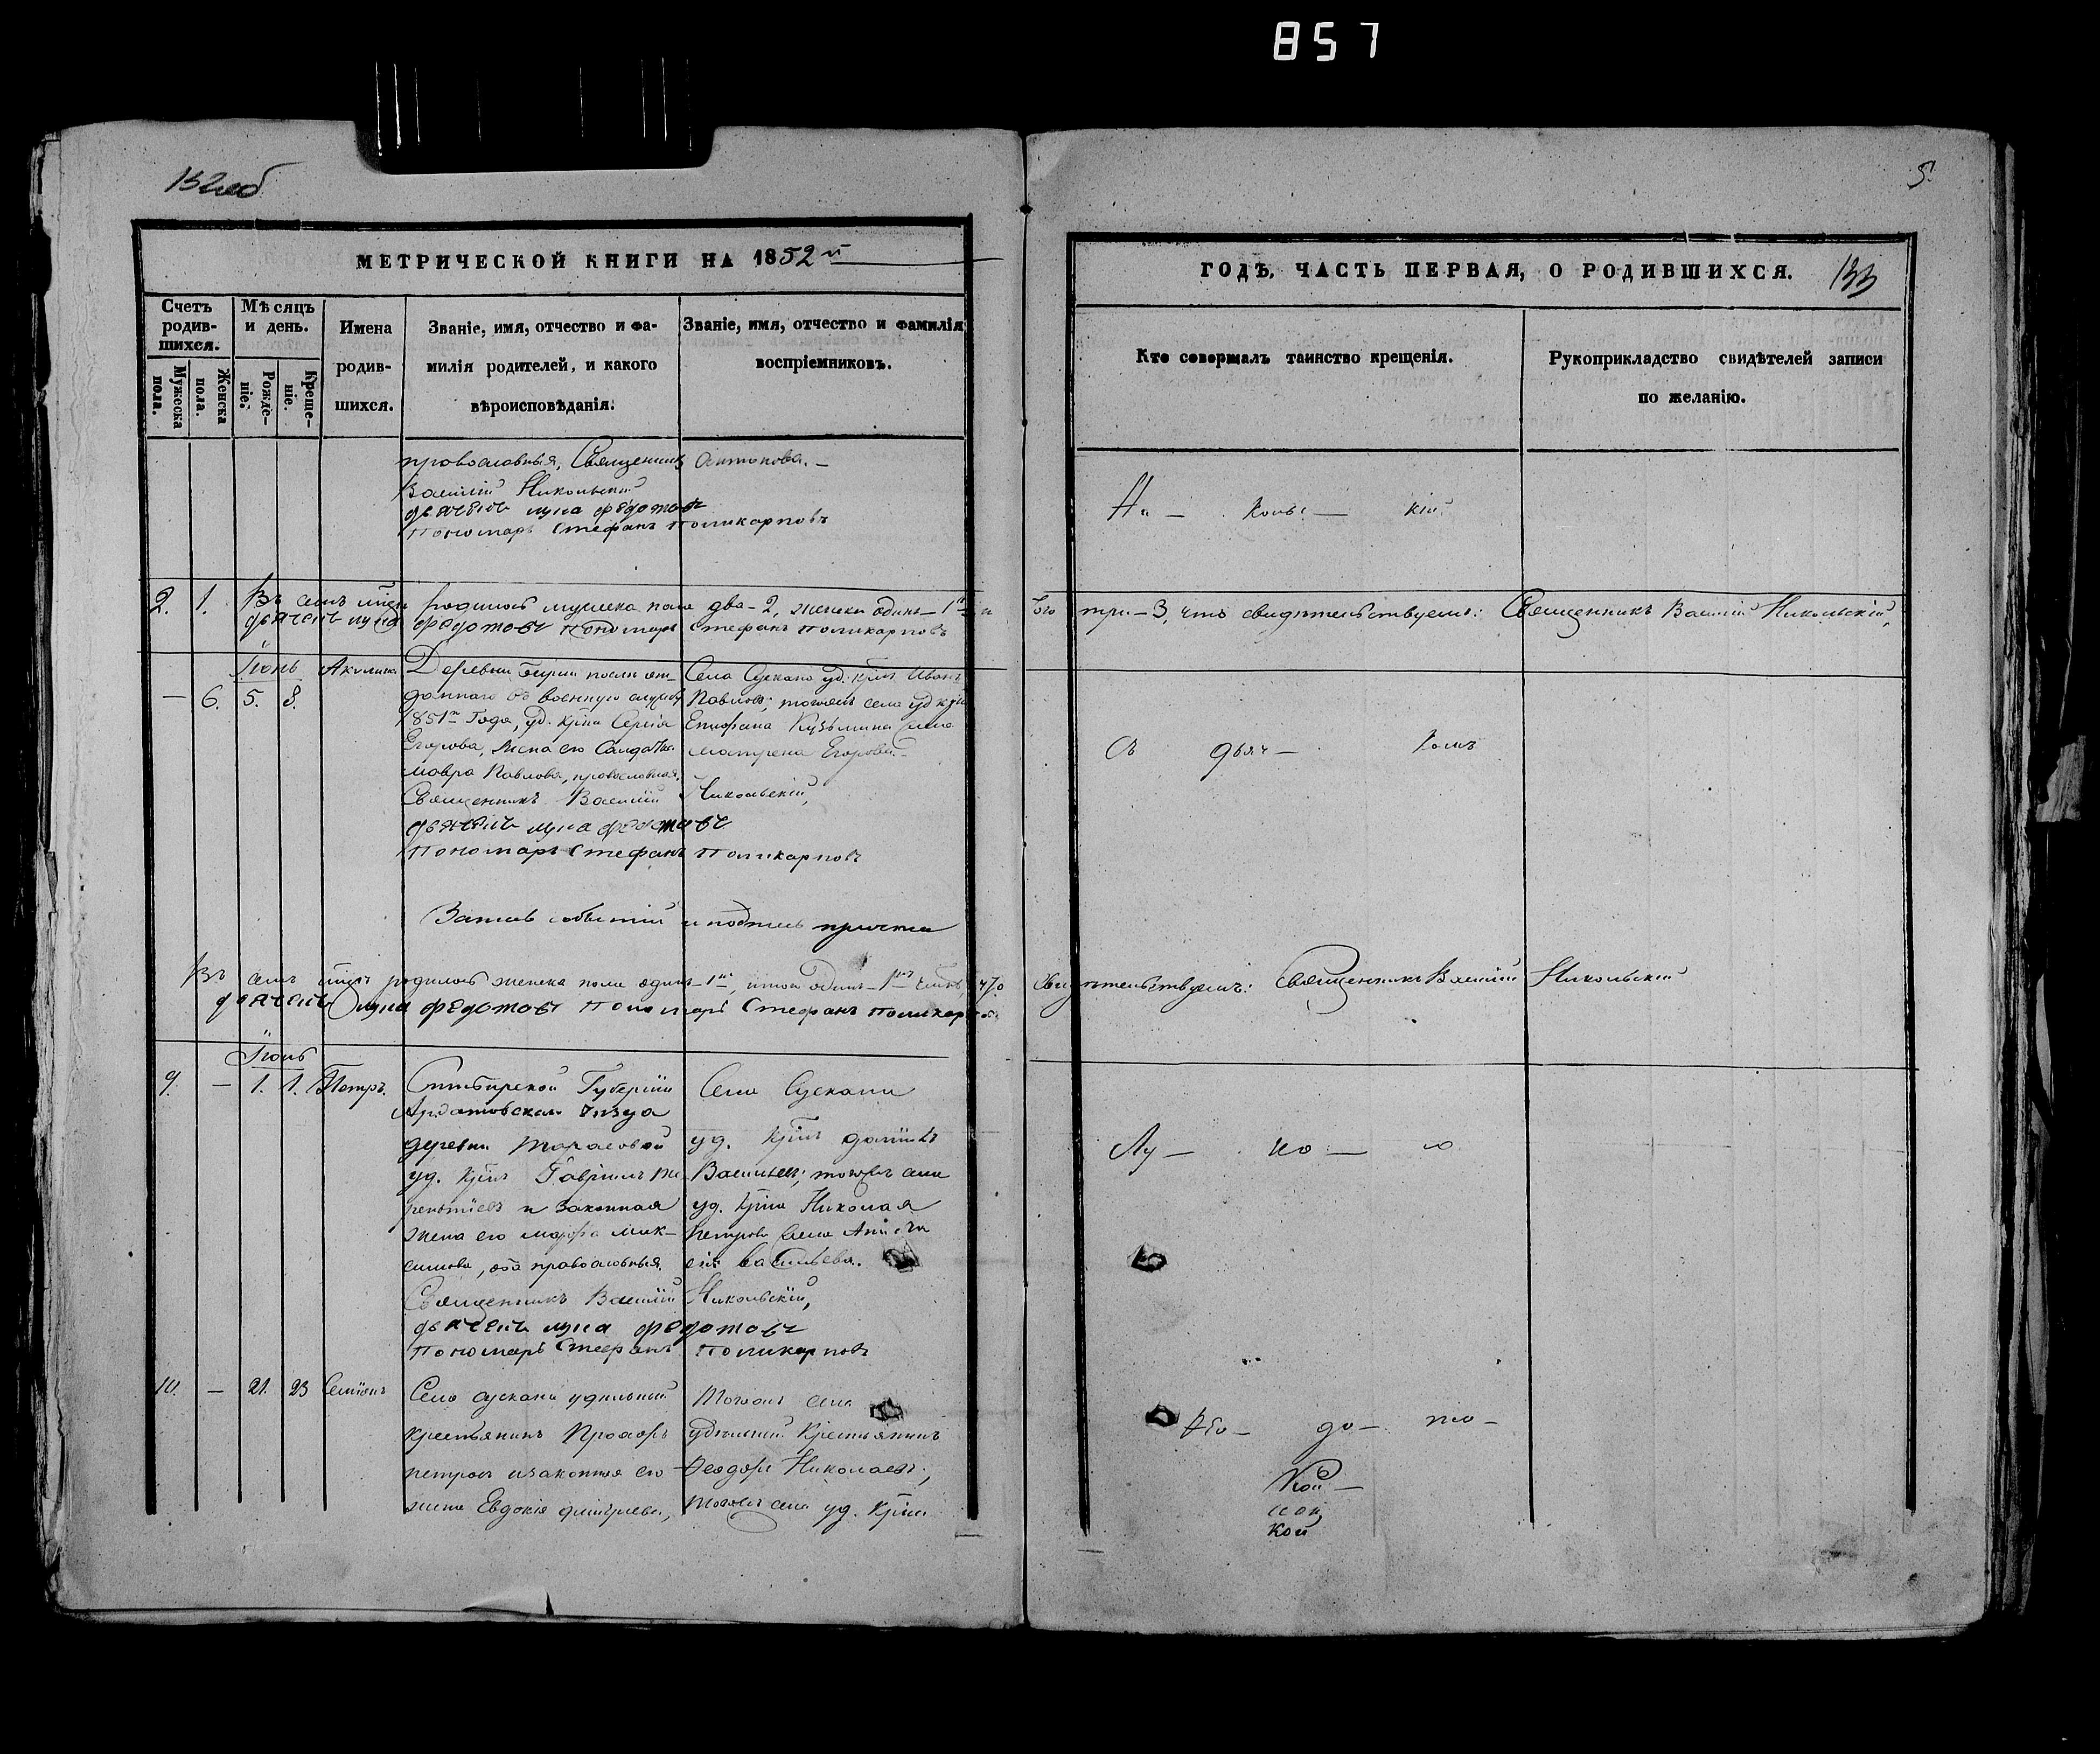 857
132об
5.
МЕТРИЧЕСКОЙ КНИГИ НА 1852й
ГОДЪ, ЧАСТЬ ПЕРВАЯ, О РОДИВШИХСЯ.
133
Счетъ родив-шихся.
Мужеска пола.
Женска пола.
Мѣсяцъ и день.
Рожде-ніе.
Креще-ніе.
Имена
родив-
шихся.
Званіе, имя, отчество и фа-
милія родителей, и какого
вѣроисповѣданія.
Званіе, имя, отчество и фамилія
воспріемниковъ.
Кто совершалъ таинство крещенія.
Рукоприкладство свидѣтелей записи
по желанію.
православныя, Священникъ
Василій Никольскій
дьячекъ лука федотовъ
пономарь Стефанъ поликарповъ
Антонова.
Ни — коль — кій
2. 1. Въ семъ родилось мужеска пола два - 2, женска одинъ - 1
три - 3, что свидѣтельствуемъ: Священникъ Василій Никольскій,
дьячекъ лука федотовъ пономарь Стефанъ поликарповъ
Іюнь
— 6. 5. 8.
Акилина
Деревни послѣ от-
даннаго въ военную службу
1851го Года, уд. крна Сергія
Егорова, жена его Солдатка
мавра Павлова, православная.
Священникъ Василій Никольскій,
дьячекъ лука федотовъ
пономарь Стефанъ поликарповъ
Села Сускана уд. крнъ Иванъ
Павловъ; тогожъ села уд крна
Епифана Кузьмина
матрена Егорова
Съ дьяч — комъ
Запись событій и подпись причта
Въ семъ родилось женска пола одинъ - 1, итого одинъ - 1
свидѣтельствуемъ: Священникъ Василій Никольскій
дьячекъ лука федотовъ пономарь Стефанъ поликарповъ
Іюль
9. — 1. 1. Петръ.
Симбирской Губерніи
Ардатовскаго уѣзда
деревни Тарасовой
уд. крнъ Гавріилъ Те-
рентіевъ и законная
жена его марфа мак-
симова, оба православныя.
Священникъ Василій Никольскій,
дьячекъ лука федотовъ
пономарь Стефанъ поликарповъ
Села Сускана
уд. крнъ
Васильевъ; тогожъ села
уд. крна Николая
петрова
васильева.
Лу — ко — ю
10. — 21. 23 Симіонъ
Села сускана удѣльный
крестьянинъ Прохоръ
петровъ и законная его
жена Евдокія дмитріева,
Тогожъ села
удѣльный Крестьянинъ
Феодоръ Николаевъ;
Тогожъ села уд. крна
Фе — до — то —
кой